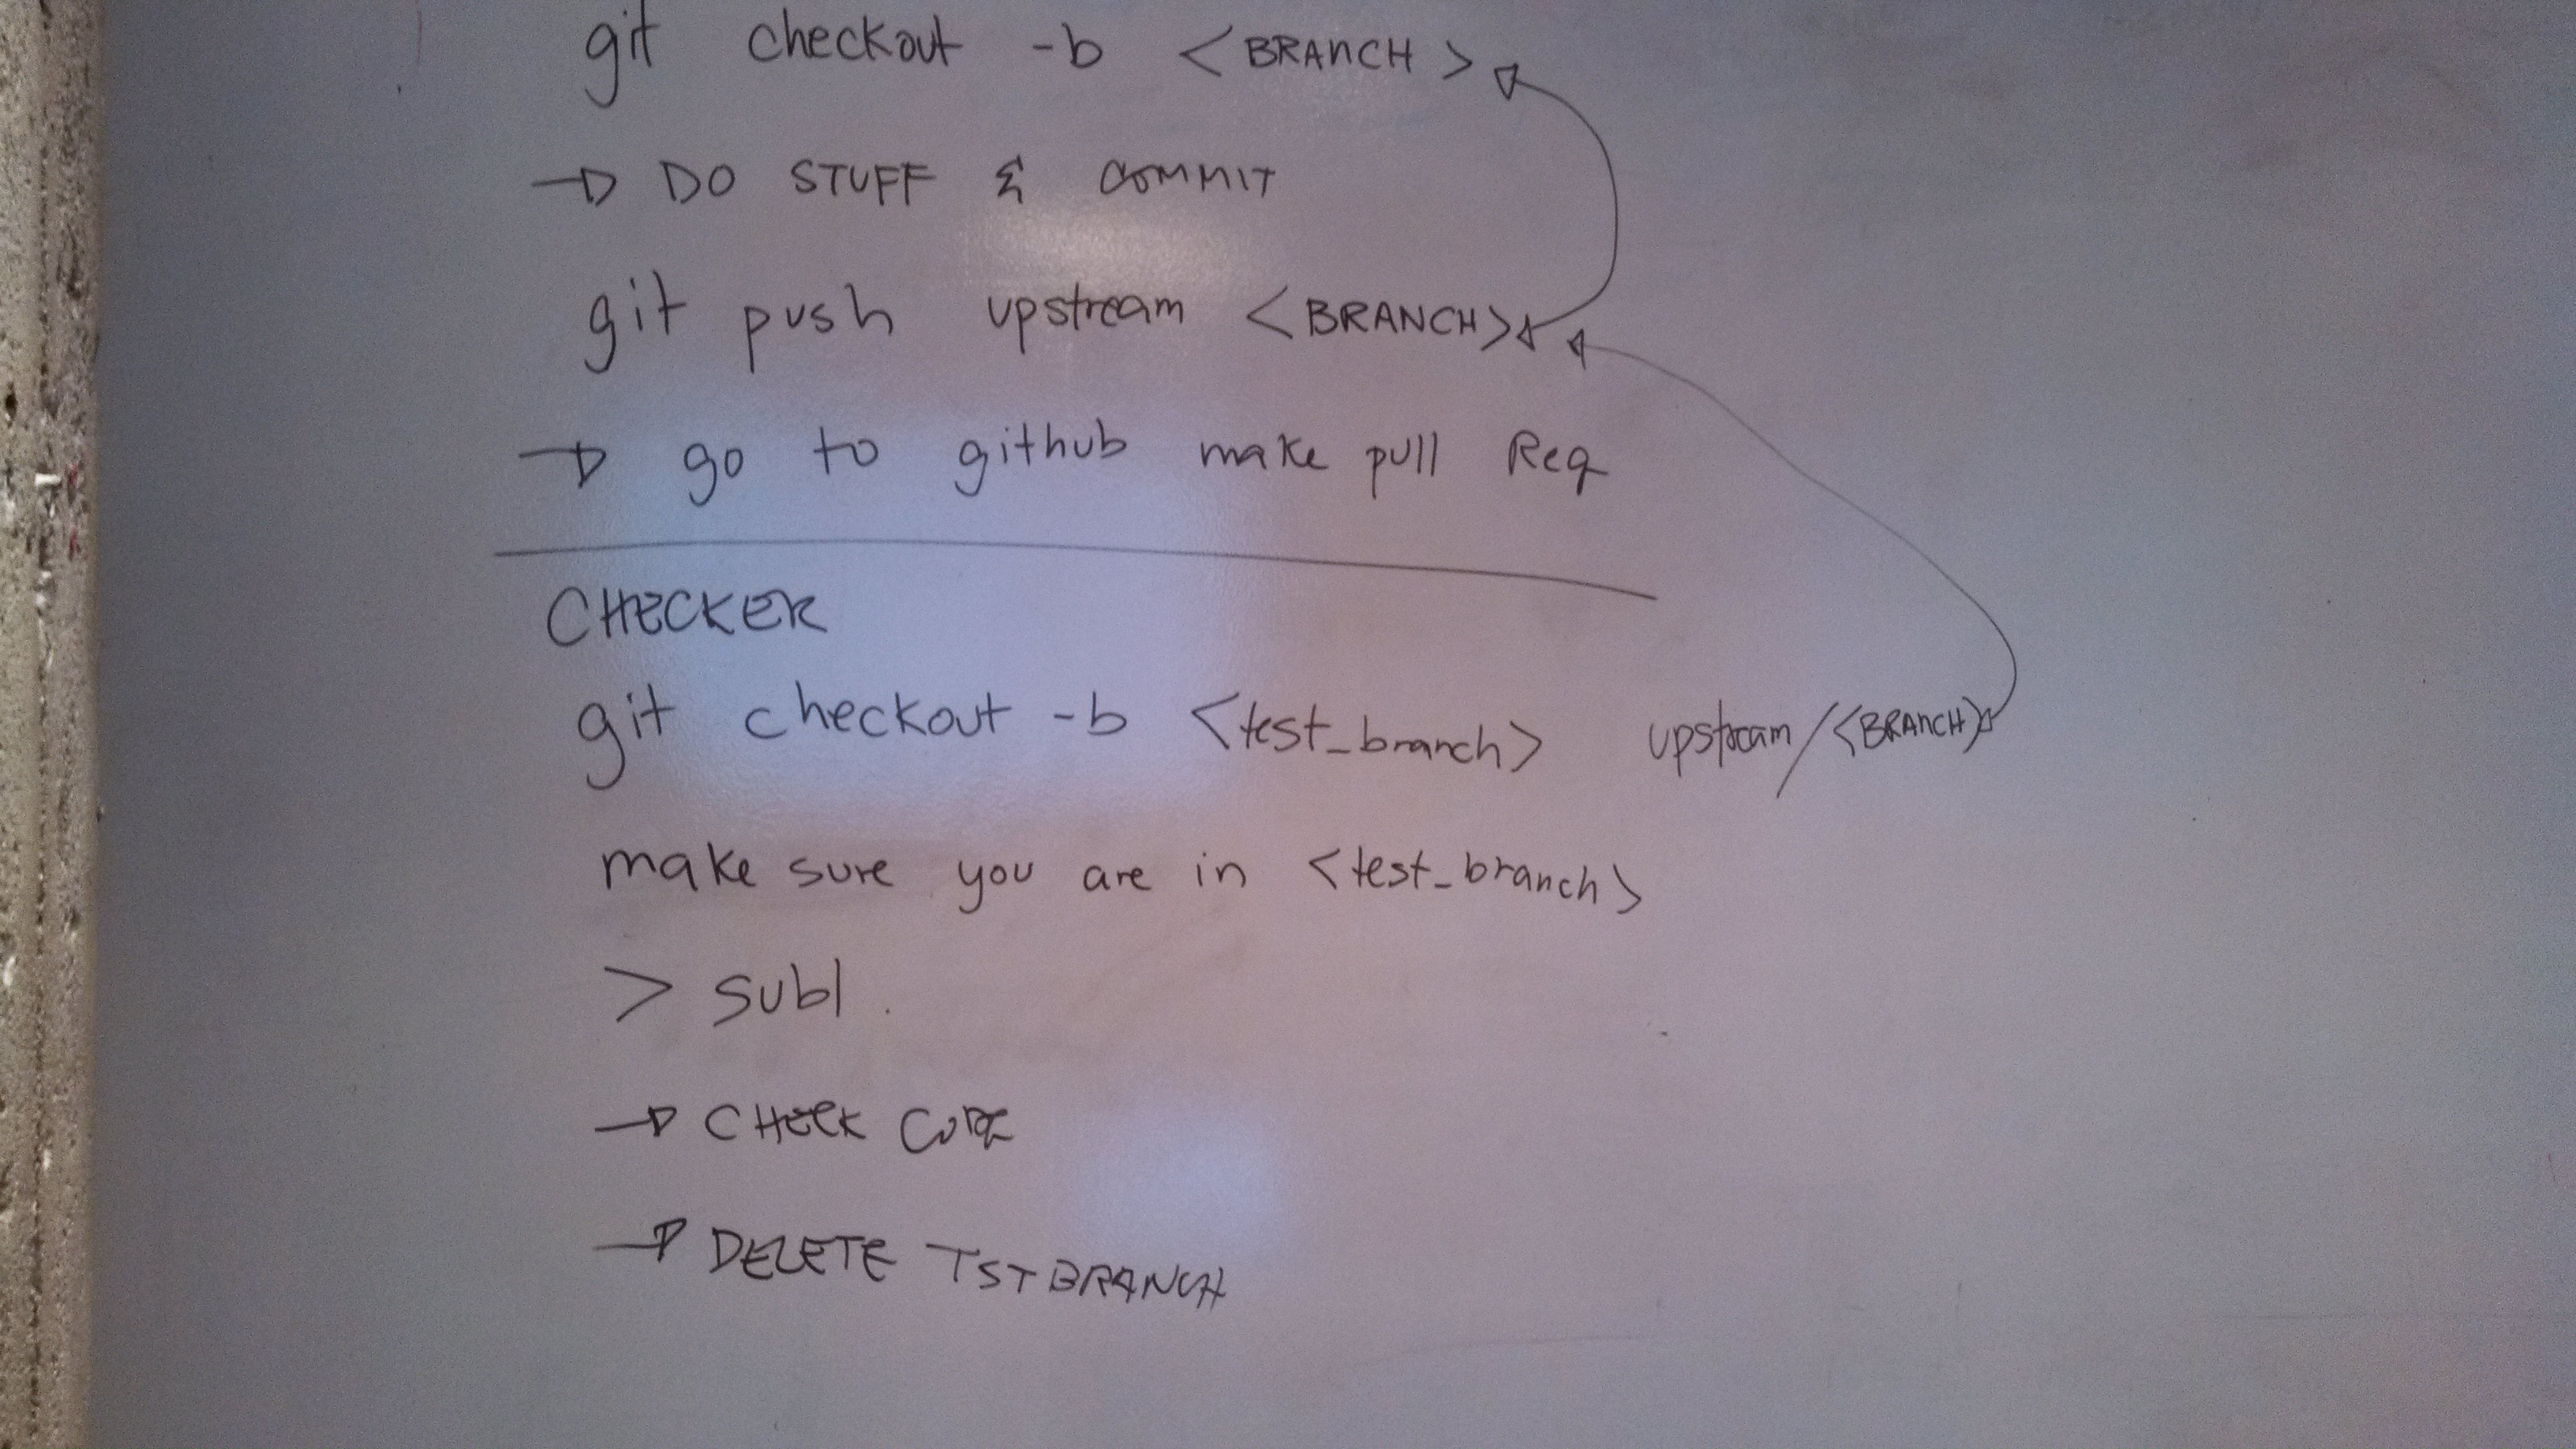 git checkout -b <BRANCH>
→ DO STUFF & COMMIT
git push upstream <BRANCH>
→ go to github make pull Req
CHECKER
git checkout -b <test_branch> upstream/<BRANCH>
make sure you are in <test_branch>
> subl .
→ CHECK CODE
→ DELETE TST BRANCH